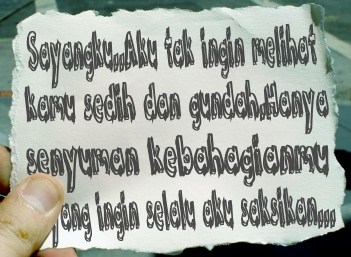 Sayangku..Aku tak ingin melihat
kamu sedih dan gundah.Hanya
senyuman kebahagianmu
yang ingin selalu aku saksikan...